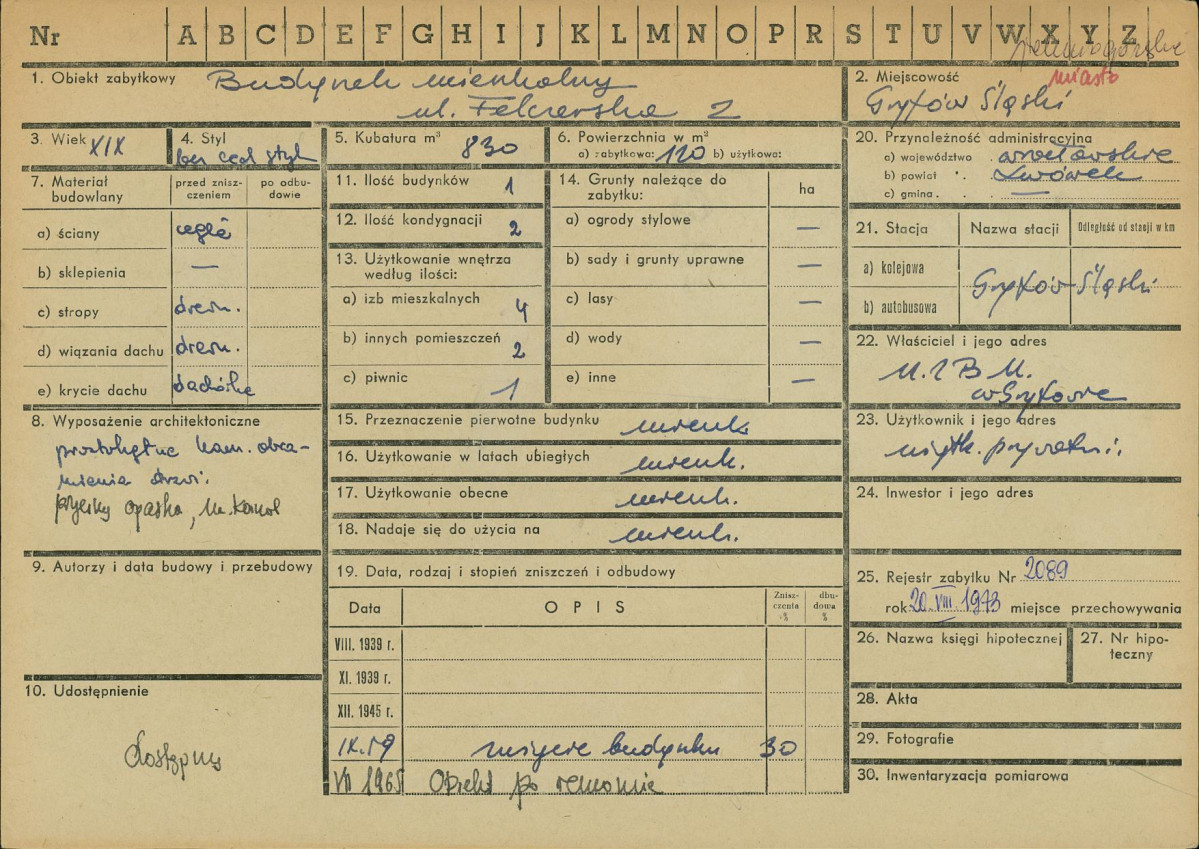 Nr A B C D E F G H I J K L M N O P R S T U V W X Y Z
miasto
1. Obiekt zabytkowy Budynek mieszkalny
ul. Felczerska 2
2. Miejscowość
Gryfów Śląski
3. Wiek XIX
4. Styl
bez cech styl.
5. Kubatura m³ 830
6. Powierzchnia w m²
a) zabytkowa: 120 b) użytkowa:
20. Przynależność administracyjna
a) województwo wrocławskie
b) powiat Lwówek
c) gmina —
7. Materiał budowlany
przed zniszczeniem
po odbudowie
a) ściany cegła
b) sklepienia —
c) stropy drewn.
d) wiązania dachu drewn.
e) krycie dachu dachówka
11. Ilość budynków 1
12. Ilość kondygnacji 2
13. Użytkowanie wnętrza
według ilości:
a) izb mieszkalnych 4
b) innych pomieszczeń 2
c) piwnic 1
14. Grunty należące do
zabytku:
ha
a) ogrody stylowe —
b) sady i grunty uprawne —
c) lasy —
d) wody —
e) inne —
21. Stacja
Nazwa stacji
Odległość od stacji w km
a) kolejowa
b) autobusowa
Gryfów Śląski
22. Właściciel i jego adres
M.Z.B.M.
w Gryfowie
8. Wyposażenie architektoniczne
prostokątne kam. obra-
mienia drzwi.
opaska,
15. Przeznaczenie pierwotne budynku mieszk.
16. Użytkowanie w latach ubiegłych mieszk.
17. Użytkowanie obecne mieszk.
18. Nadaje się do użycia na mieszk.
23. Użytkownik i jego adres
użytk. prywatni.
24. Inwestor i jego adres
9. Autorzy i data budowy i przebudowy
19. Data, rodzaj i stopień zniszczeń i odbudowy
Data
OPIS
Zniszczenia %
dbudowa %
VIII. 1939 r.
XI. 1939 r.
XII. 1945 r.
IX.59 zużycie budynku 30
VII 1965 Obiekt po remoncie
25. Rejestr zabytku Nr 2089
rok 20.VIII.1973 miejsce przechowywania
26. Nazwa księgi hipotecznej
27. Nr hipo-
teczny
10. Udostępnienie
dostępny
28. Akta
29. Fotografie
30. Inwentaryzacja pomiarowa